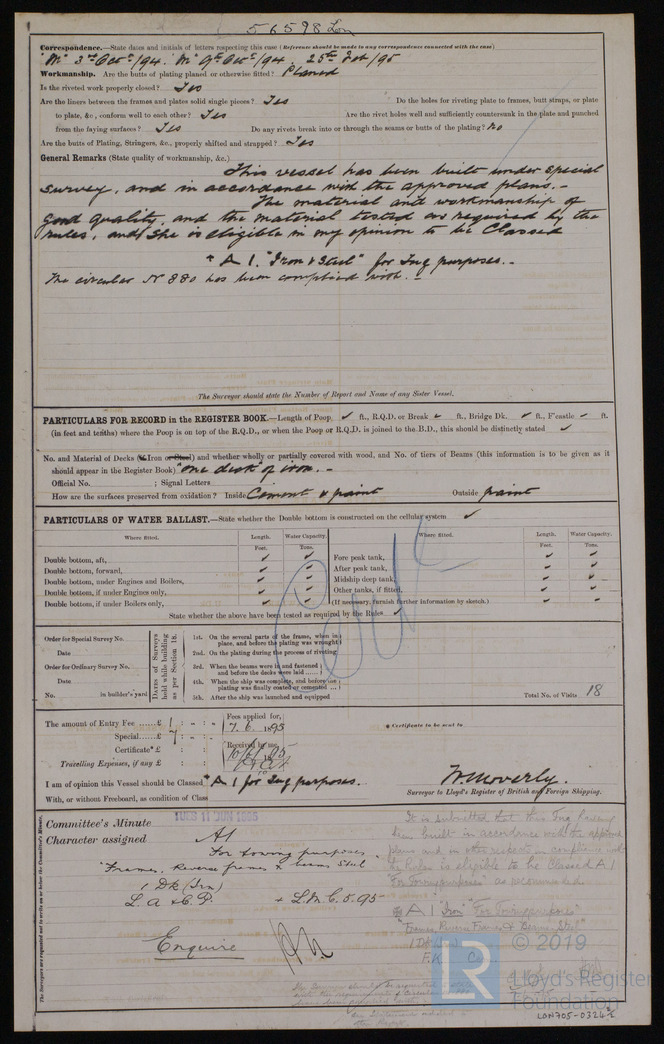 56598 Lon
Correspondence.—State dates and initials of letters respecting this case (Reference should be made to any correspondence connected with the case)
"M" 3rd Oct/94. "M" 9th Oct/94. 25th Feb/95
Workmanship. Are the butts of plating planed or otherwise fitted? Planed
Is the riveted work properly closed? Yes
Are the liners between the frames and plates solid single pieces? Yes Do the holes for riveting plate to frames, butt straps, or plate
to plate, &c., conform well to each other? Yes Are the rivet holes well and sufficiently countersunk in the plate and punched
from the faying surfaces? Yes Do any rivets break into or through the seams or butts of the plating? No
Are the butts of Plating, Stringers, &c., properly shifted and strapped? Yes
General Remarks (State quality of workmanship, &c.)
This vessel has been built under special
survey, and in accordance with the approved plans.-
The material and workmanship of
good quality, and the material tested as required by the
rules, and she is eligible in my opinion to be Classed
+ A 1. "Iron & Steel" for Tug purposes.-
The circular No 880 has been complied with.-
The Surveyor should state the Number of Report and Name of any Sister Vessel.
PARTICULARS FOR RECORD in the REGISTER BOOK.—Length of Poop, ✓ ft., R.Q.D. or Break ✓ ft., Bridge Dk. ✓ ft., F'castle ✓ ft.
(in feet and tenths) where the Poop is on top of the R.Q.D., or when the Poop or R.Q.D. is joined to the B.D., this should be distinctly stated ✓
No. and Material of Decks (if Iron or Steel) and whether wholly or partially covered with wood, and No. of tiers of Beams (this information is to be given as it
should appear in the Register Book) "One deck of iron.-
Official No. ; Signal Letters
How are the surfaces preserved from oxidation? Inside Cement & paint Outside paint
PARTICULARS OF WATER BALLAST.—State whether the Double bottom is constructed on the cellular system ✓
Where fitted. Length. Water Capacity. Where fitted. Length. Water Capacity.
Feet. Tons. Feet. Tons.
Double bottom, aft, ✓ ✓ Fore peak tank, ✓ ✓
Double bottom, forward, ✓ ✓ After peak tank, ✓ ✓
Double bottom, under Engines and Boilers, ✓ ✓ Midship deep tank, ✓ ✓
Double bottom, if under Engines only, ✓ ✓ Other tanks, if fitted, ✓ ✓
Double bottom, if under Boilers only, ✓ ✓ (If necessary, furnish further information by sketch.) ✓ ✓
State whether the above have been tested as required by the Rules ✓
Order for Special Survey No.
Date
Order for Ordinary Survey No.
Date
No. in builder's yard
Dates of Surveys held while building as per Section 18.
1st. On the several parts of the frame, when in place, and before the plating was wrought
2nd. On the plating during the process of riveting
3rd. When the beams were in and fastened and before the decks were laid
4th. When the ship was complete, and before the plating was finally coated or cemented
5th. After the ship was launched and equipped
Total No. of Visits 18
The amount of Entry Fee ......£ 1 : " : " Fees applied for,
Special......£ 7 : " : " 7.6.1895
Certificate* £ : : Received by me,
Travelling Expenses, if any £ : :
* Certificate to be sent to
I am of opinion this Vessel should be Classed "A 1 for Tug purposes.
With, or without Freeboard, as condition of Class
W. Moverly.
Surveyor to Lloyd's Register of British and Foreign Shipping.
Committee's Minute TUES 11 JUN 1895
Character assigned A1
For towing purposes
"Frames, Reverse frames & beams Steel"
1 Dk (Irn)
L.A. & C.P. + L.M.C. 5.95
Enquire
It is submitted that this Tug having
been built in accordance with the approved
plans and in other respects in compliance with
the Rules is eligible to be Classed A 1
"For Towing purposes" as recommended
A 1 Iron "For Towing purposes"
"Frames Reverse Frames & Beams Steel"
© 2019
Lloyd's Register
Foundation
LON705-0324
The Surveyors are requested not to write on or below the Committee's Minute.